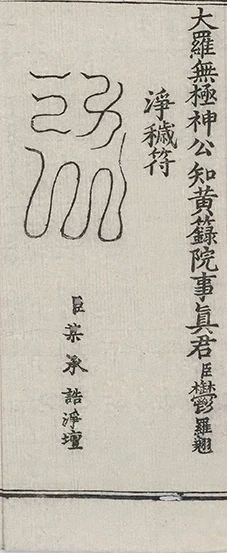 大羅無極神公知黃籙院事真君臣鬱羅翹
淨穢符
臣某承誥淨壇